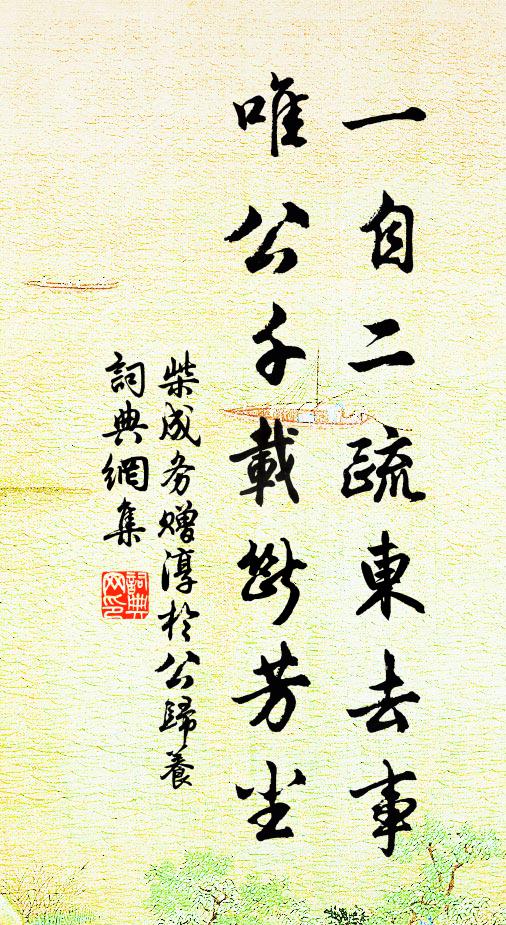 一自二疏東去事
唯公千載芳尘
柴成务赠淳於公歸養
詞典網集
詞典网印